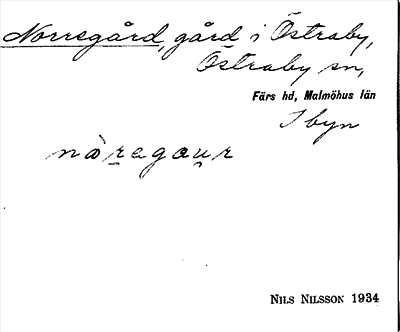 Norregård, gård i Östraby,
Östraby sn,
Färs hd, Malmöhus län
I byn
Nils Nilsson 1934